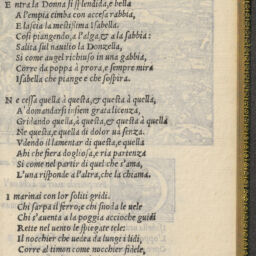 E ntra la Donna sì splendida, e bella
A l'empia cimba con accesa rabbia,
E lascia la mestissima Isabella.
Così piangendo, a l'alga, & a la sabbia:
Salita sul nautico la Donzella,
Si come augel richiuso in una gabbia,
Corre da poppa à prora, e sempre mira
Isabella che piange e che sospira.
N e cessa quella à questa, & questa à quella,
A domandarsi insiem gratia licenza,
Gridando quella, à questa, & questa à quella,
Ne questa, e quella di dolor va senza.
Vdendo il lamentar di questa, e quella
Ahi che fiera dogliosa, e ria partenza
Si come nel partir di quel che s'ama,
L'una risponde a l'altra, che la chiama.
I marinai con lor soliti gridi.
Chi sarpa il ferro; e chi snoda le vele
Chi s'auenta a la poggia accioche guidi
Rette nel uento le spiegate tele:
Il nocchier che uedea da lungi i lidi,
Corre al timon come nocchier fidele,